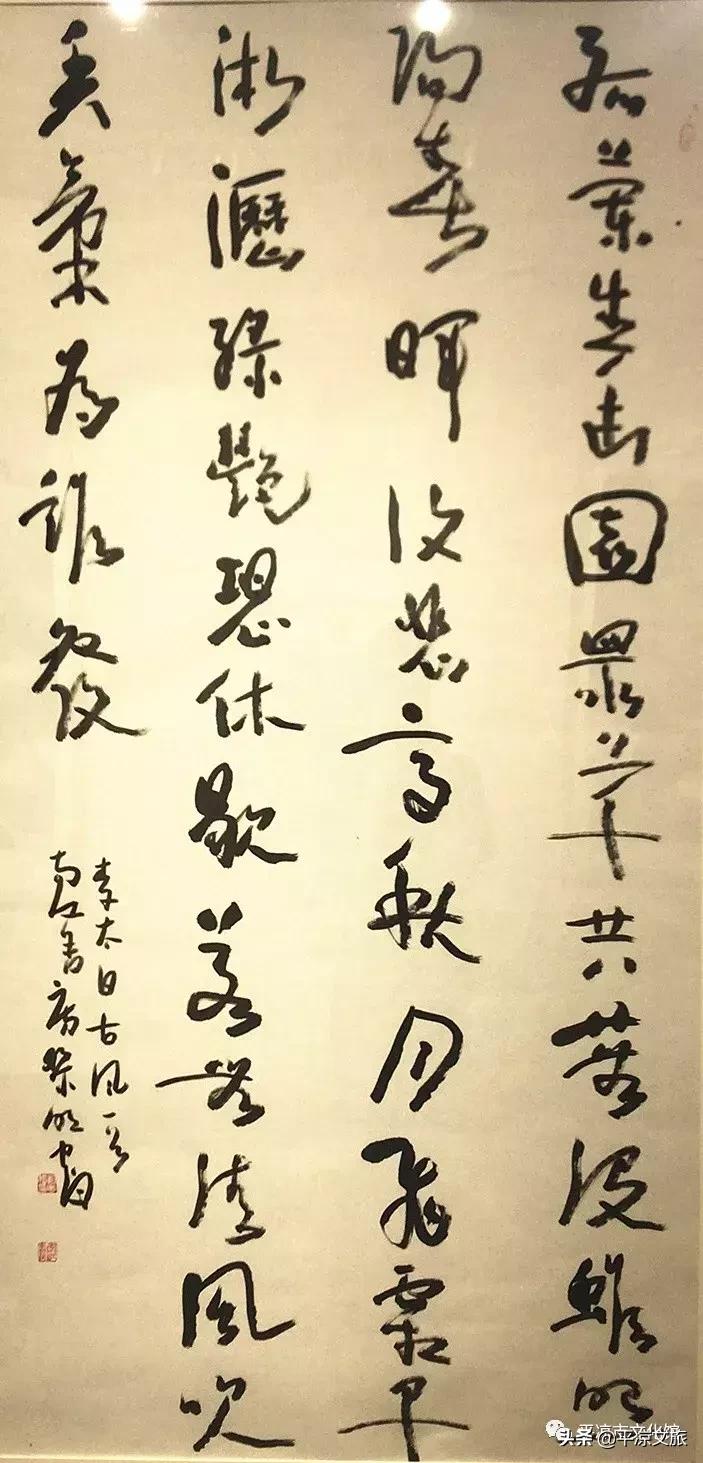 孤蘭生幽園眾草共蕪沒雖照
陽春暉復悲高秋月飛霜早
淅瀝綠艷恐休歇若無清風吹
香氣為誰發
李太白古風一首
書房
平凉市文化馆
头条 @平凉文旅